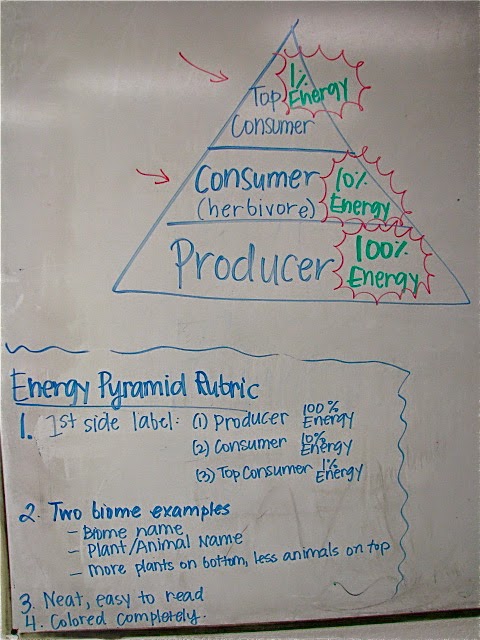 1%
Energy
Top
Consumer
Consumer
(herbivore)
10%
Energy
Producer
100%
Energy
Energy Pyramid Rubric
1. 1st side label: (1) Producer 100% Energy
(2) Consumer 10% Energy
(3) Top Consumer 1% Energy
2. Two biome examples
- Biome name
- Plant/Animal Name
- more plants on bottom, less animals on top
3. Neat, easy to read
4. Colored completely.